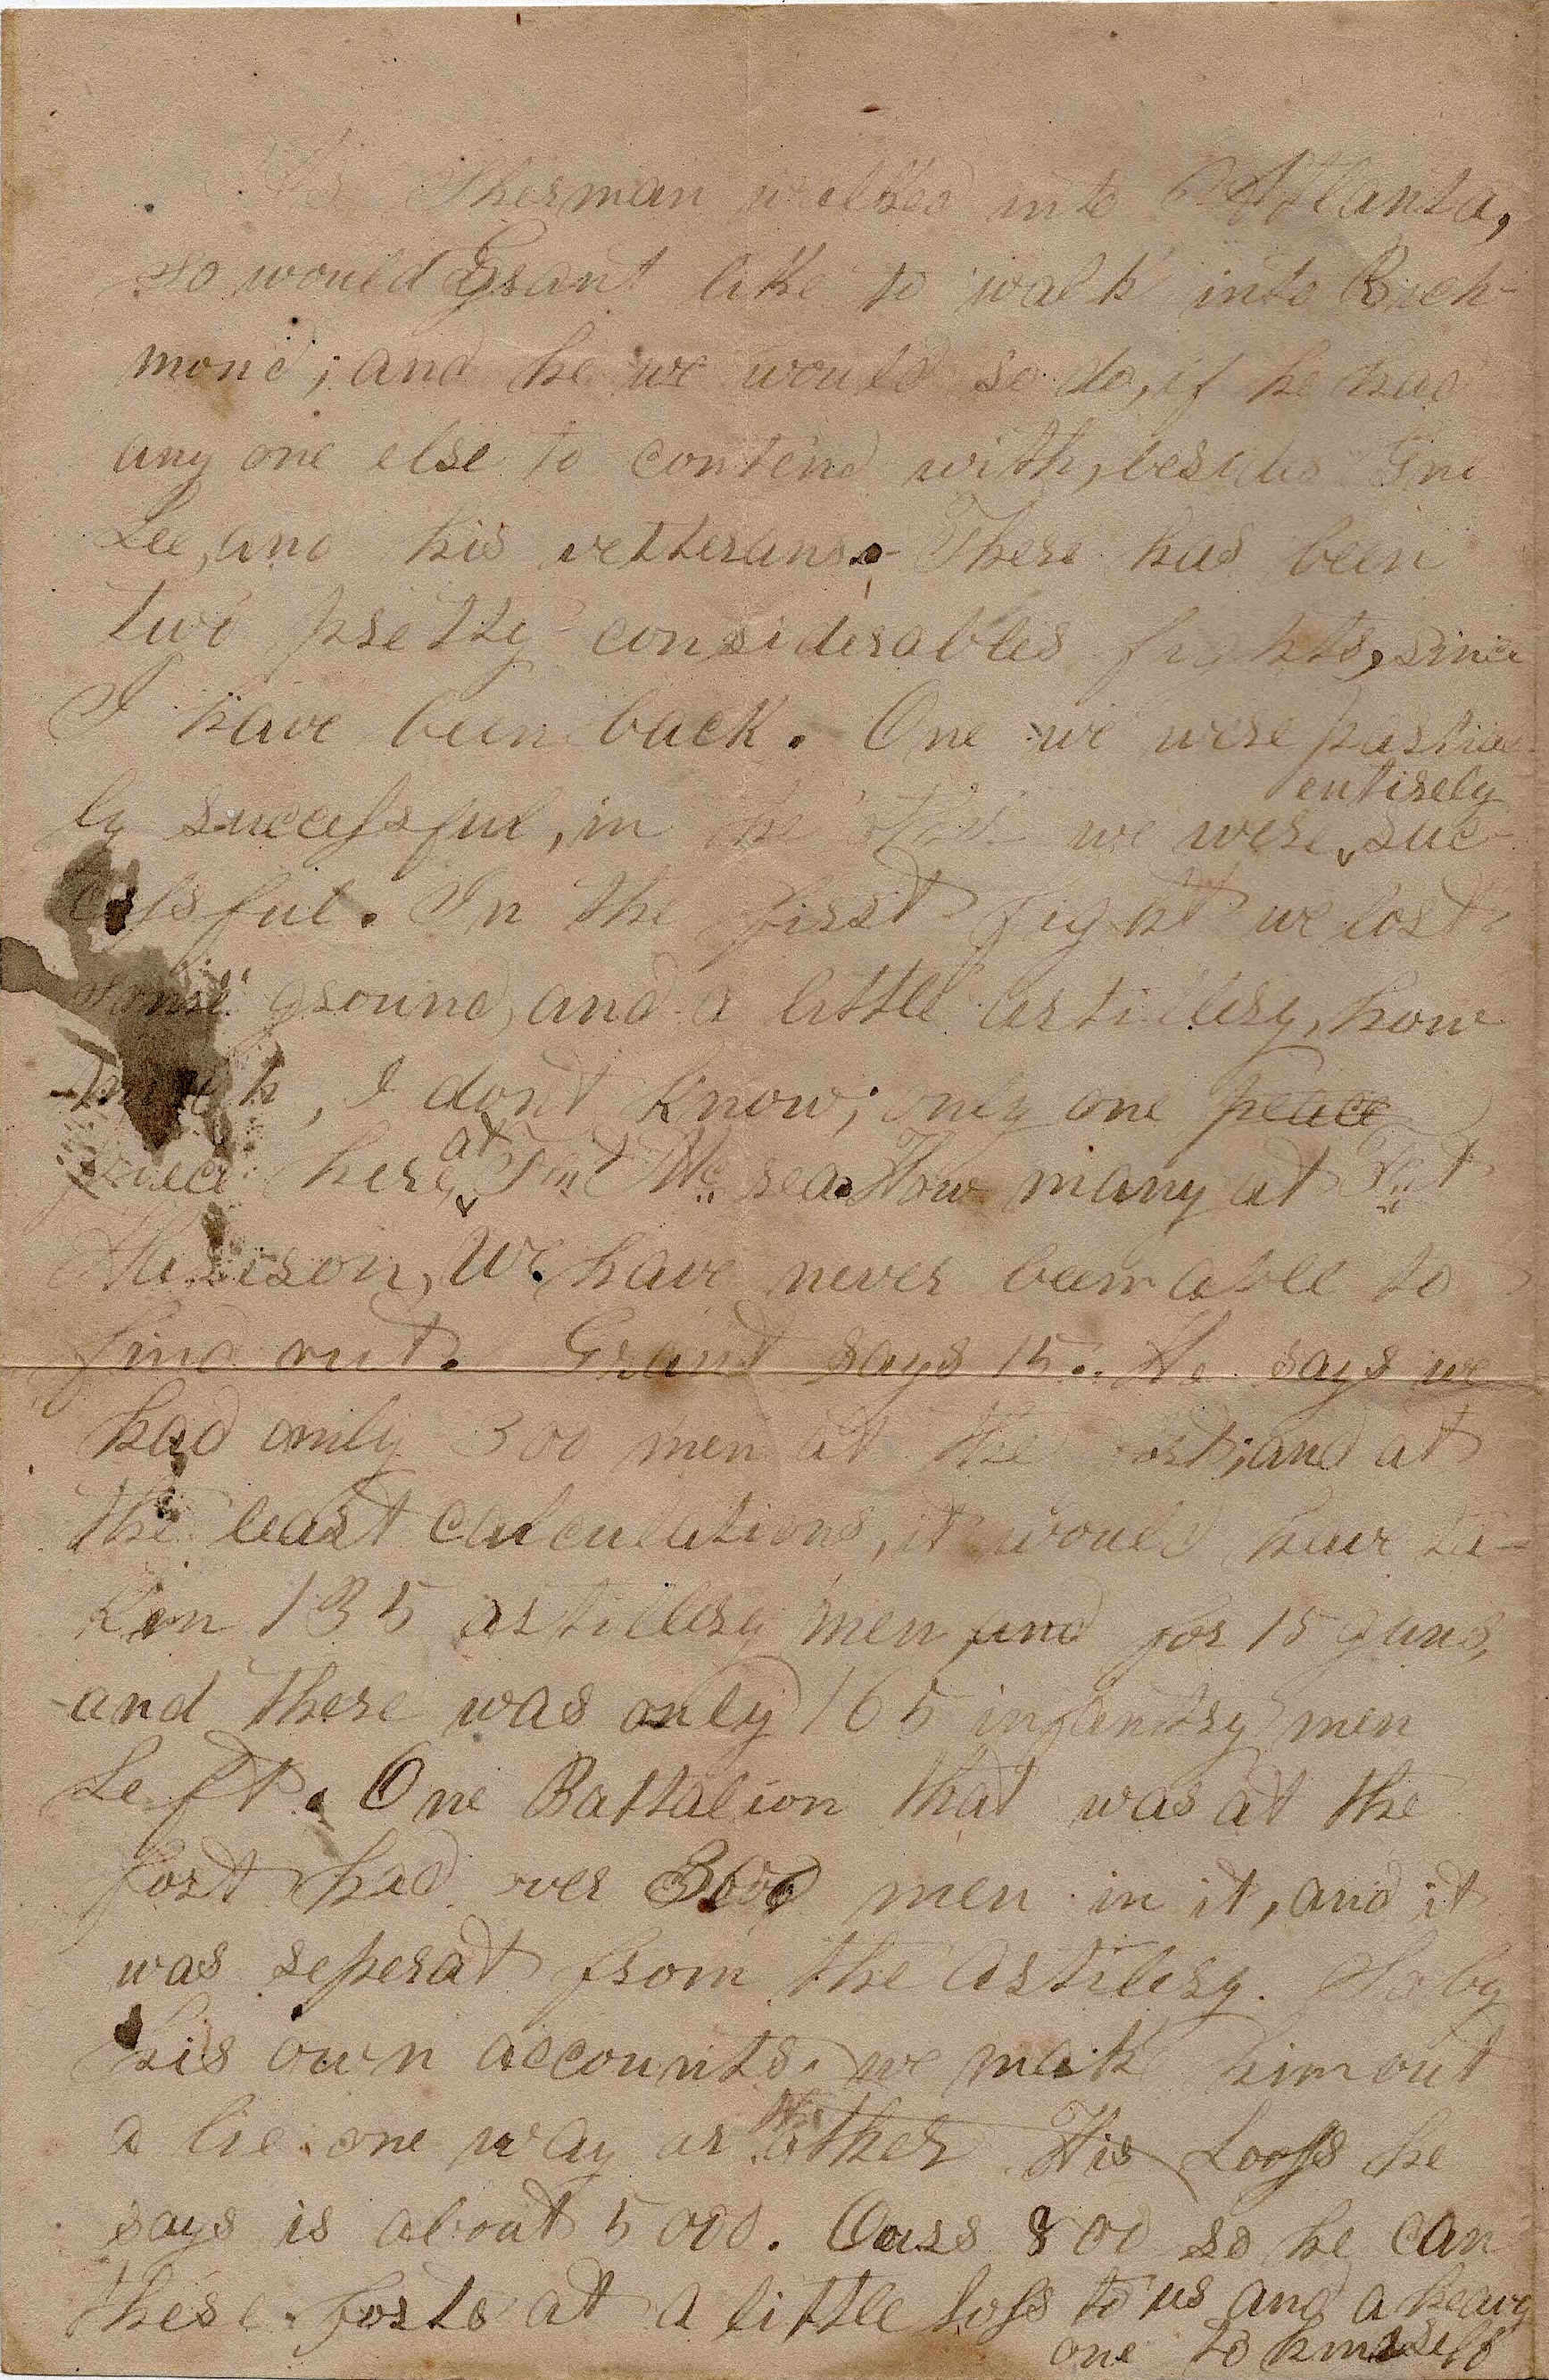 As Sherman walked into Atlanta,
so would Grant like to walk into Rich-
mond; and he we would so do, if he had
any one else to contend with, besides Gne
Lee, and his vetterans. There has been
two pretty considerables fights, since
I have been back. One we were partial-
ly successful, in the other we were entirely suc-
cessful. In the first fight we lost
some ground, and a little artillery, how
much, I don't know; only one peace
piece here, at Fort Mc rea. How many at Fort
Harison, We have never been able to
find out. Grant says 15. He says we
had only 300 men at the fort; and at
the least calculations, it would have ta-
ken 135 artillery men and for 15 guns,
and there was only 165 infantry men
Left. One Battalion that was at the
fort had over 300 men in it, and it
was seperat from the artilery. So by
his own accounts we make him out
a lie one way or the other His Looss he
says is about 5000. Ours 800 so he can
these forts at a little loss to us and a heavy
one to himself